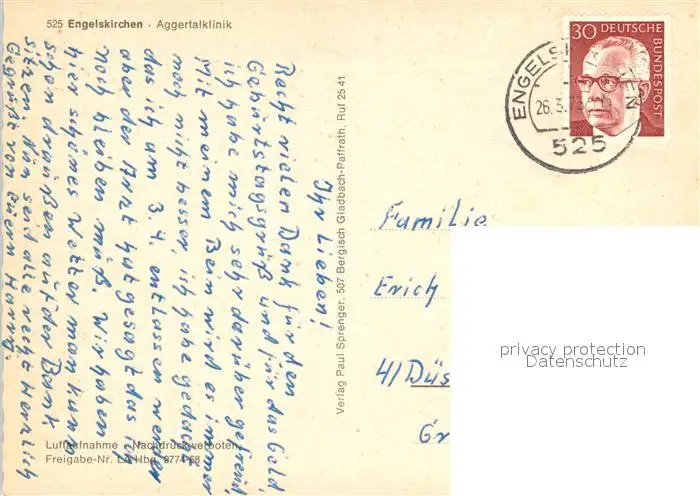 525 Engelskirchen · Aggertalklinik
Ihr Lieben!
Recht vielen Dank für den
Geburtstagsgrüß und für das Geld,
ich habe mich sehr darüber gefreut,
Mit meinem Bein wird es immer
noch nicht besser, ich habe gedacht
das ich am 3.4. entlassen werde
aber der Arzt hat gesagt das ich
noch bleiben muß. Wir haben
hier schönes Wetter man kann
schon draußen auf der Bank
sitzen. Nun seid alle recht herzlich
Gegrüßt von Eurem Harry.
Luftaufnahme · Nachdruck verboten
Freigabe-Nr. LA Hbg. 3774-68
Verlag Paul Sprenger, 507 Bergisch Gladbach-Paffrath, Ruf 25 41
30 DEUTSCHE
BUNDESPOST
26.3.
525
Familie
Erich
4/ Düs
Gr
privacy protection
Datenschutz